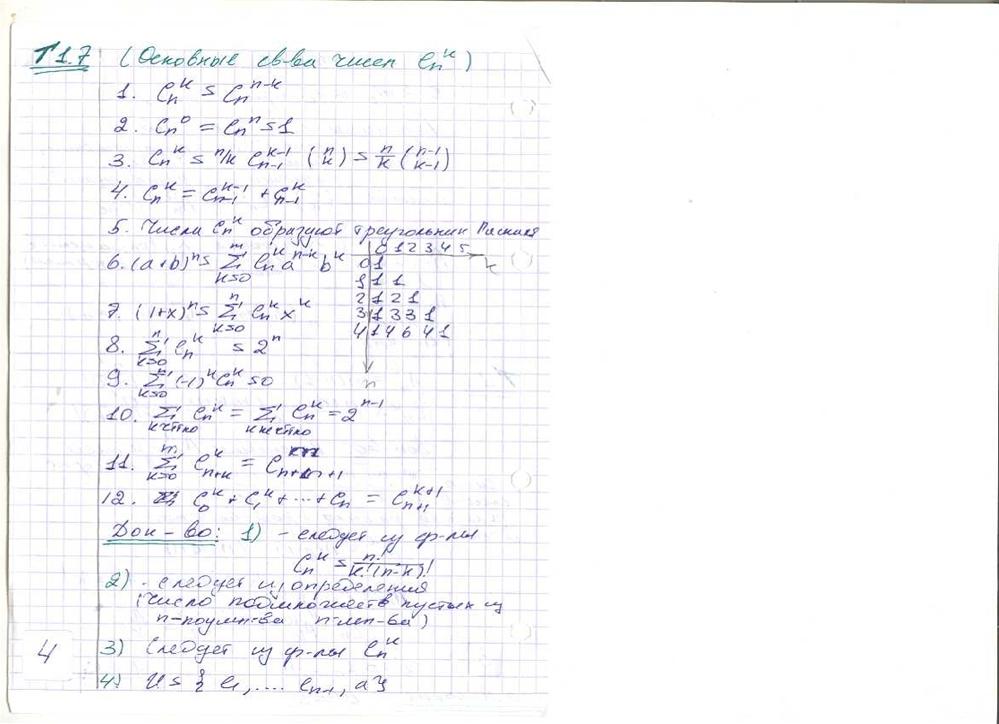 Т 1.7 (Основные св-ва чисел Cₙᵏ)
1. Cₙᵏ = Cₙⁿ⁻ᵏ
2. Cₙ⁰ = Cₙⁿ = 1
3. Cₙᵏ = n/k Cₙ₋₁ᵏ⁻¹ (n k) = n/k (n-1 k-1)
4. Cₙᵏ = Cₙ₋₁ᵏ⁻¹ + Cₙ₋₁ᵏ
5. Числа Cₙᵏ образуют треугольник Паскаля
0 1 2 3 4 5 k
0 1
1 1 1
2 1 2 1
3 1 3 3 1
4 1 4 6 4 1
n
6. (a+b)ⁿ = Σ m k=0 Cₙᵏ aⁿ⁻ᵏ bᵏ
7. (1+x)ⁿ = Σ n k=0 Cₙᵏ xᵏ
8. Σ n k=0 Cₙᵏ = 2ⁿ
9. Σ n k=0 (-1)ᵏ Cₙᵏ = 0
10. Σ k чётно Cₙᵏ = Σ k нечётно Cₙᵏ = 2ⁿ⁻¹
11. Σ m k=0 Cₙ₊ₖᵏ = Cₙ₊ₘ₊₁
12. C₀ᵏ + C₁ᵏ + ... + Cₙ = Cₙ₊₁ᵏ⁺¹
Док-во: 1) - следует из ф-лы
Cₙᵏ = n! / k!(n-k)!
2) - следует из определения
(число подмножеств пустых из
3) Следует из ф-лы Cₙᵏ
4) U = { e₁, .... eₙ₋₁, a}
4